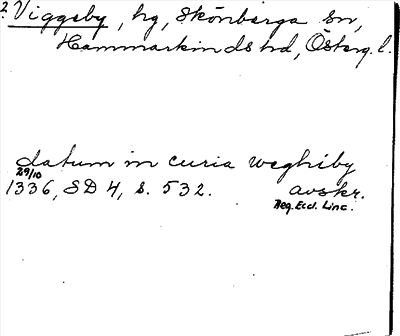 ? Viggeby, hg, Skönberga sn,
Hammarkinds hd, Österg. l.
datum in curia weghiby
29/10
1336, SD 4, s. 532. avskr.
Reg. Eccl. Linc.